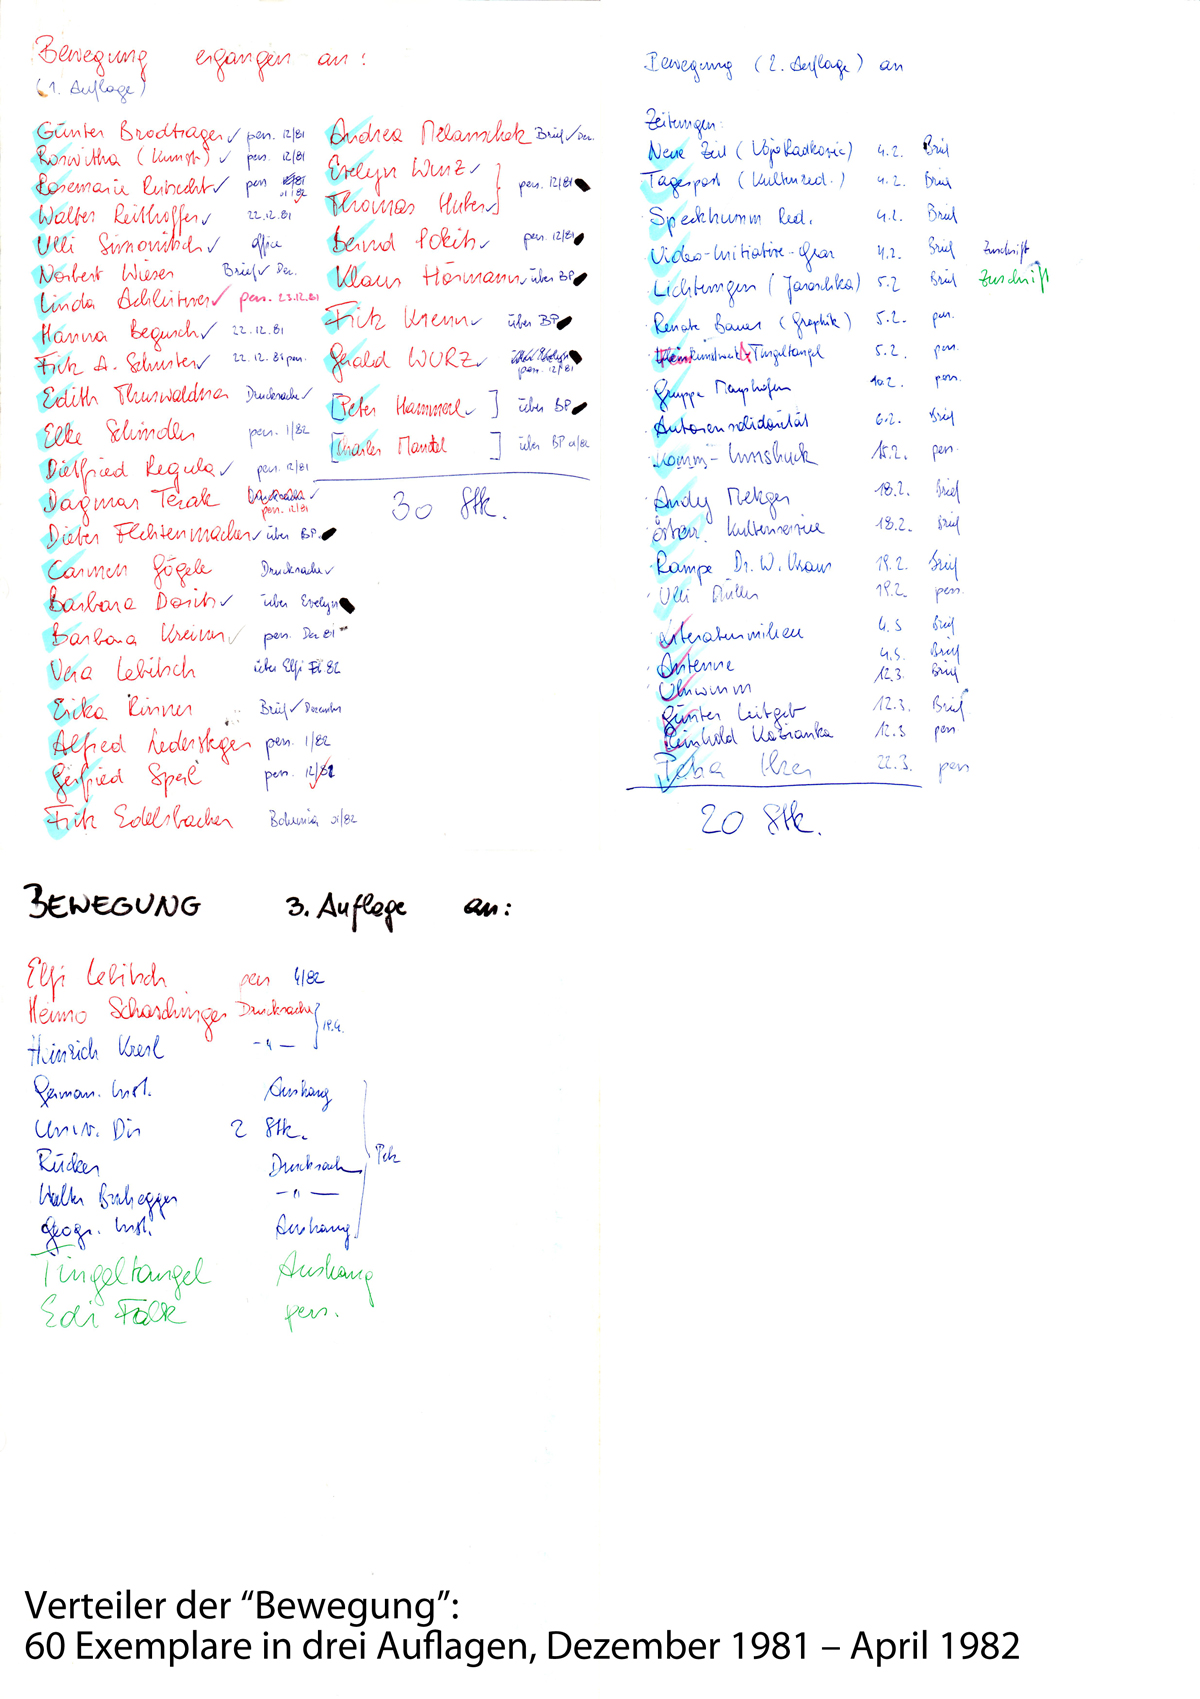 Bewegung ergangen an:
(1. Auflage)
Günter Brodtrager ✓ pers. 12/81
Roswitha (Kunst) ✓ pers. 12/81
Rosemarie ✓ pers 01/82
Walter Reithoffer ✓ 22.12.81
Ulli Simonitsch ✓ office
Norbert Wieser Brief ✓ Dez.
Linda Achleitner ✓ pers. 23.12.81
Hanna Begusch ✓ 22.12.81
Fritz A. Schuster ✓ 22.12.81 pers.
Edith Thurwaldner Drucksache ✓
Elke Schindler pers. 1/82
Dietfried Regula ✓ pers. 12/81
Dagmar Terak Drucksache ✓ pers. 12/81
Dieter Flechtenmacher ✓ über BP
Carmen Gögele Drucksache ✓
Barbara ✓ über Evelyn
Barbara Kreiner ✓ pers. Dez 81
Vera Lebitsch über Elfi 82
Erika Rinner Brief ✓ Dezember
Alfred Ledersteger pers. 1/82
Gerfried Sperl pers. 12/81
Fritz Edelsbacher Bohemia 01/82
Andrea Melanschek Brief ✓ Dez.
Evelyn Wurz ✓
Thomas Huber ✓ pers. 12/81
Bernd ✓ pers. 12/81
Klaus Hörmann ✓ über BP
Fritz Krenn ✓ über BP
Gerald WURZ ✓ pers. 12/81
[Peter Hammerl ✓] über BP
[Charles Mandel] über BP 01/82
30 Stk.
Bewegung (2. Auflage) an
Zeitungen:
Neue Zeit (Vojo Radkovic) 4.2. Brief
Tagespost (Kulturred.) 4.2. Brief
Speckhumm Red. 4.2. Brief
Video-Initiative-Graz 4.2. Brief Zuschrift
Lichtungen (Jaroschka) 5.2 Brief Zuschrift
Renate Bauer (Graphik) 5.2. pers.
Tingeltangel 5.2. pers.
Gruppe Mayrhofen 10.2. pers.
Autorensolidarität 6.2. Brief
Komm-Innsbruck 15.2. pers.
Andy Metzger 18.2. Brief
Österr. Kulturservice 18.2. Brief
Rampe Dr. W. Kraus 19.2. Brief
Ulli Müller 19.2. pers.
Literaturmilieu 4.3 Brief
Antenne 4.3. Brief
Uhwurm 12.3. Brief
Günter Leitgeb 12.3. Brief
Reinhold Kobianka 12.3 pers
Petra 22.3. pers
20 Stk.
BEWEGUNG 3. Auflage an:
Elfi Lebitsch pers 4/82
Heimo Schaschinger Drucksache
19.4.
Heinrich Kresl – " –
German. Inst. Aushang
Univ. Dir 2 Stk.
Rücker Drucksache
Petz
Walter Buchegger – " –
Geogr. Inst. Aushang
Tingeltangel Aushang
Edi Falk pers.
Verteiler der “Bewegung”:
60 Exemplare in drei Auflagen, Dezember 1981 – April 1982